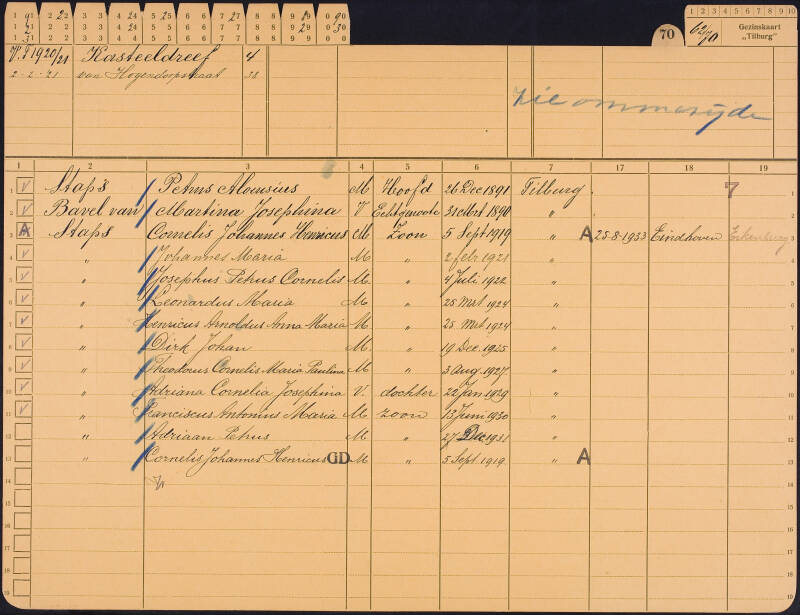 70
62/70
Gezinskaart
"Tilburg"
V. 1920/21 Kasteeldreef 4
2-2-21 van Hogendorpstraat 38
zie ommezijde
1 2 3 4 5 6 7 17 18 19
1 V Staps Petrus Alousius M Hoofd 26 Dec 1891 Tilburg 7
2 V Bavel van Martina Josephina V Echtgenoote 31 Mrt 1890 "
3 A Staps Cornelis Johannes Henricus M Zoon 5 Sept 1919 " A 25-8-1933 Eindhoven
4 V " Johannes Maria M " 2 febr 1921 "
5 V " Josephus Petrus Cornelis M. " 4 Juli 1922 "
6 V " Leonardus Maria M " 25 Mrt 1924 "
7 V " Henricus Arnoldus Anna Maria M " 25 Mrt 1924 "
8 V " Dirk Johan M. " 19 Dec. 1925 "
9 V " Theodorus Cornelis Maria Paulina M " 3 Aug 1927 "
10 V " Adriana Cornelia Josephina V. dochter 22 Jan 1929 "
11 V " Franciscus Antonius Maria M zoon 13 Juni 1930 "
12 " Adriaan Petrus M " 27 Dec 1931 "
13 " Cornelis Johannes Henricus GD M " 5 Sept 1919 " A
14
15
16
17
18
19